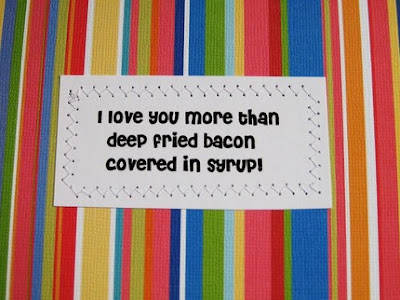 I love you more than
deep fried bacon
covered in syrup!